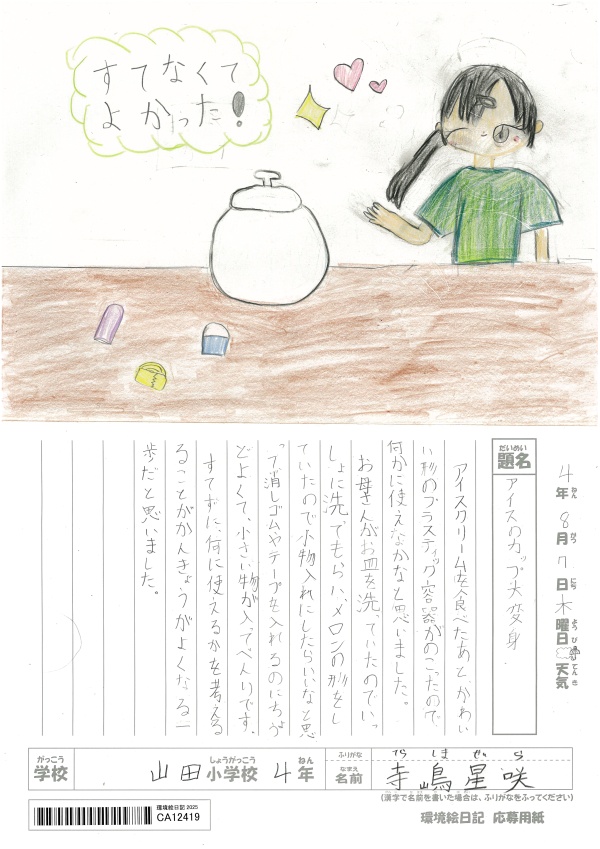 すてなくて
よかった!
4年 8月 7日 木曜日 天気
ねん がつ にち ようび てんき
だいめい
題名
アイスのカップ大変身
アイスクリームを食べたあと、かわい
い形のプラスティック容器がのこったので
何かに使えなかなと思いました。
お母さんがお皿を洗っていたのでいっ
しょに洗てもらい、メロンの形をし
ていたので小物入れにしたらいいなと思
って消しゴムやテープを入れるのにちょう
どよくて、小さい物が入ってべんりです。
すてずに、何に使えるかを考え
ることがかんきょうがよくなる一
歩だと思いました。
がっこう
学校
山田小学校 4年
しょうがっこう ねん
ふりがな
てらしま せら
なまえ
名前
寺嶋 星咲
(漢字で名前を書いた場合は、ふりがなをふってください)
環境絵日記 2025
CA12419
環境絵日記 応募用紙